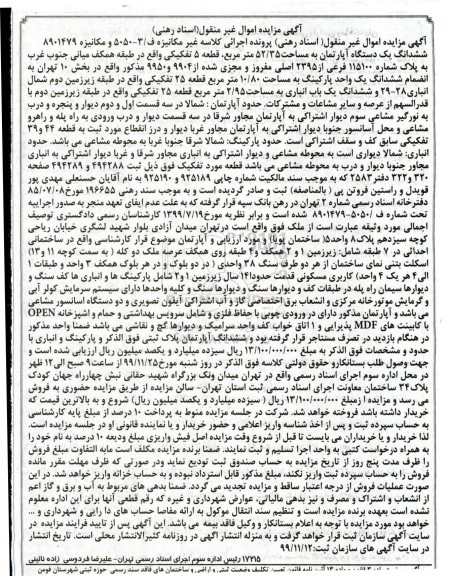 آگهی مزایده اموال غیر منقول(اسناد رهنی)
آگهی مزایده اموال غیر منقول( اسناد رهنی) پرونده اجرائی کلاسه غیر مکانیزه ف/۵۰۵۰-۳ و مکانیزه ۸۹۰۱۴۷۹
ششدانگ یک دستگاه آپارتمان به مساحت ۵۲/۳۵ متر مربع. قطعه ۵ تفکیکی واقع در طبقه همکف میانی جنوب غرب
به پلاک شماره ۱۱۵۱۰۰ فرعی از۲۳۹۵ اصلی مفروز و مجزی شده از۹۹۰۴ و ۹۹۵۰ مذکور واقع در بخش ۱۰ تهران به
انضمام ششدانگ یک واحد پارکینگ به مساحت ۱۰/۸۰ متر مربع قطعه ۲۵ تفکیکی واقع در طبقه زیرزمین دوم شمال
انباری۲۸-۲۹ و ششدانگ یک باب انباری به مساحت ۲/۹۵ متر مربع قطعه ۲۵ تفکیکی واقع در طبقه زیرزمین دوم با
قدرالسهم از عرصه و سایر مشاعات و مشترکات. حدود آپارتمان : شمالا در سه قسمت اول و دوم دیوار و پنجره و درب
به نورگیر مشاعی سوم دیوار اشتراکی به آپارتمان مجاور شرقا در سه قسمت دیوار و درب ورودی به راه پله و راهرو
مشاعی و محل آسانسور جنوبا دیوار اشتراکی به آپارتمان مجاور غربا دیوار و درز انقطاع مورد ثبت به قطعه ۴۴ و۳۹
تفکیکی سابق کف و سقف اشتراکی است. حدود پارکینگ: شمالا شرقا جنوبا غربا به محوطه مشاعی می باشد. حدود
انباری: شمالا دیواری است به محوطه مشاعی و دیوار اشتراکی به انباری مجاور شرقا و غربا دیوار اشتراکی به انباری
مجاور جنوبا دیوار و درب به محوطه مشاعی می باشد قطعه مورد تفکیک فوق ذیل ثبت ۴۹۴۲۸۸ و ۴۹۴۲۸۹ صفحه
۳۲۰ و۳۲۳ دفتر۲۵۸۳ که به موجب سند مالکیت شماره چاپی ۹۲۵۱۸۹ و ۹۲۵۱۹۰ به نام آقایان حسنعلی مهدی پور
قویدل و راستین فروتن پی ( بالمناصفه) ثبت و صادر گردیده است و به موجب سند رهنی ۱۹۶۶۵۵ مورخ۸۵/۰۷/۰۸
دفترخانه اسناد رسمی شماره ۲ تهران در رهن بانک سپه قرار گرفته که به علت عدم ایفای تعهد منجر به صدور اجراییه
تحت شماره ف/۵۰۵۰- ۸۹۰۱۴۷۹ شده است و برابر نظریه مورخ۱۳۹۹/۷/۱۹ کارشناسان رسمی دادگستری توصیف
اجمالی مورد وثیقه عبارت است از ملک فوق واقع است درتهران میدان آزادی بلوار شهید لشگری خیابان ریاحی
کوچه سیزدهم پلاک۸ واحد۵( ساختمان پویا) مورد ارزیابی و آپارتمان موضوع قرار کارشناسی واقع در ساختمانی
احداثی در ۷ طبقه شامل: زیرزمین ۱ و ۲ همکف و۴ طبقه روی همکف عرصه ملک دو کله ( به سمت کوچه ۱۱ و ۱۳)
اسکلت بتنی نمای ساختمان از هر دو طرف سنگ ۳۸ واحدی ( در دو بلوک و در هر بلوک همکف ۳ واحد و طبقات ۱
الی۴ هر یک ۴ واحد) کاربری مسکونی قدمت حدودا۱۴ سال زیرزمین ۱و۲ شامل پارکینگ ها و انباری ها کف سنگ و
دیوارها سیمان راه پله در طبقات کف و دیوارها سنگ و دیوارها سنگ و کلیه واحدها دارای سیستم سرمایش کولر آبی
و گرمایش موتورخانه مرکزی و انشعاب برق اختصاصی گاز و آب اشتراکی آیفون تصویری و دو دستگاه آسانسور مشاعی
می باشد و آپارتمان مذکور دارای در ورودی چوبی با حفاظ فلزی و شامل سرویس بهداشتی و حمام و اشپزخانه OPEN
با کابینت های MDF پذیرایی و ۱ اتاق خواب کف واحد سرامیک و دیوارها گچ و نقاشی می باشد ضمنا واحد مذکور
در هنگام بازدید در تصرف مستاجر قرار گرفته بود و ششدانگ آپارتمان پلاک ثبتی فوق الذکر و پارکینگ و انباری با
حدود و مشخصات فوق الذکر به مبلغ ۱۳/۱۰۰/۰۰۰/۰۰۰ ریال سیزده میلیارد و یکصد میلیون ریال ارزیابی شده است و
جهت وصول طلب بستانکارو حقوق دولتی کلاسه فوق الذکر در روز شنبه مورخ۹۹/۱۱/۲۵ از ساعت ۹ صبح الی ۱۲ ظهر
در محل اداره سوم اجرای اسناد رسمی واقع در تهران میدان ونک بزرگراه شهید حقانی نبش چهارراه جهان کودک
پلاک۳۴ ساختمان معاونت اجرای اسناد رسمی ثبت استان تهران- سالن مزایده از طریق مزایده حضوری به فروش
می رسد و مزایده ا زمبلغ ۱۳/۱۰۰/۰۰۰/۰۰۰ ریال ( سیزده میلیارد و یکصد میلیون ریال) شروع و به بالاترین قیمت که
خریدار داشته باشد فروخته خواهد شد. شرکت در جلسه مزایده منوط به پرداخت ۱۰ درصد از مبلغ پایه کارشناسی
به حساب سپرده ثبت و پس از اخذ شناسه واریز اعلامی و حضور خریدار و یا نماینده قانونی او در جلسه مزایده است.
لذا خریدار و یا خریداران می بایست تا قبل از شروع وقت مزایده اصل فیش واریزی مبلغ ودیعه ۱۰ درصد به نام خود را
به همراه درخواست کتبی به واحد اجرا تسلیم و ثبت نمایند. ضمنا برنده مزایده مکلف است مابه التفاوت مبلغ فروش
را ظرف مدت پنج روز از تاریخ مزایده به حساب صندوق ثبت تودیع نماید ودر صورتی که ظرف مهلت مقرر مانده
فروش را به حساب سپرده ثبت واریز نکند، مبلغ مذکور قابل استرداد نبوده و به حساب خزانه واریز خواهد شد. در این
صورت عملیات فروش از درجه اعتبار ساقط و مزایده تجدید می گردد. ضمنا بدهی های مربوط به آب و برق و گاز اعم
از انشعاب و اشتراک و مصرف و نیز بدهی مالیاتی، عوارض شهرداری و غیره که رقم قطعی آنها برای این اداره معلوم
نشده است بعهده برنده مزایده است و تنظیم سند انتقال موکول به ارائه مفاصا حساب های دا رایی و شهرداری و ...
خواهد بود مورد مزایده با توجه به اعلام بستانکار و وکیل فاقد بیمه می باشد. این آگهی پس از تایید فرایند مزایده در
سایت آگهی سازمان ثبت قرار خواهد گرفت و به منزله انتشار اگهی در روزنامه کثیرالانتشار محلی است. تاریخ انتشار
در سایت آگهی های سازمان ثبت:۹۹/۱۱/۱۲
۱۷۷۱۵ رئیس اداره سوم اجرای اسناد رسمی تهران-علیرضا فردوسی زاده نائینی